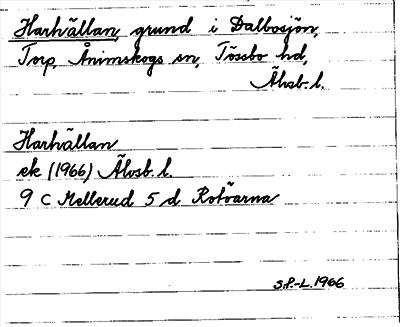 Harhällan, grund i Dalbosjön,
Torp, Ånimskogs sn, Tössbo hd,
Älvsb. l.
Harhällan
ek (1966) Älvsb. l.
9 C Mellerud 5 d Rotöarna
S.P.-L. 1966